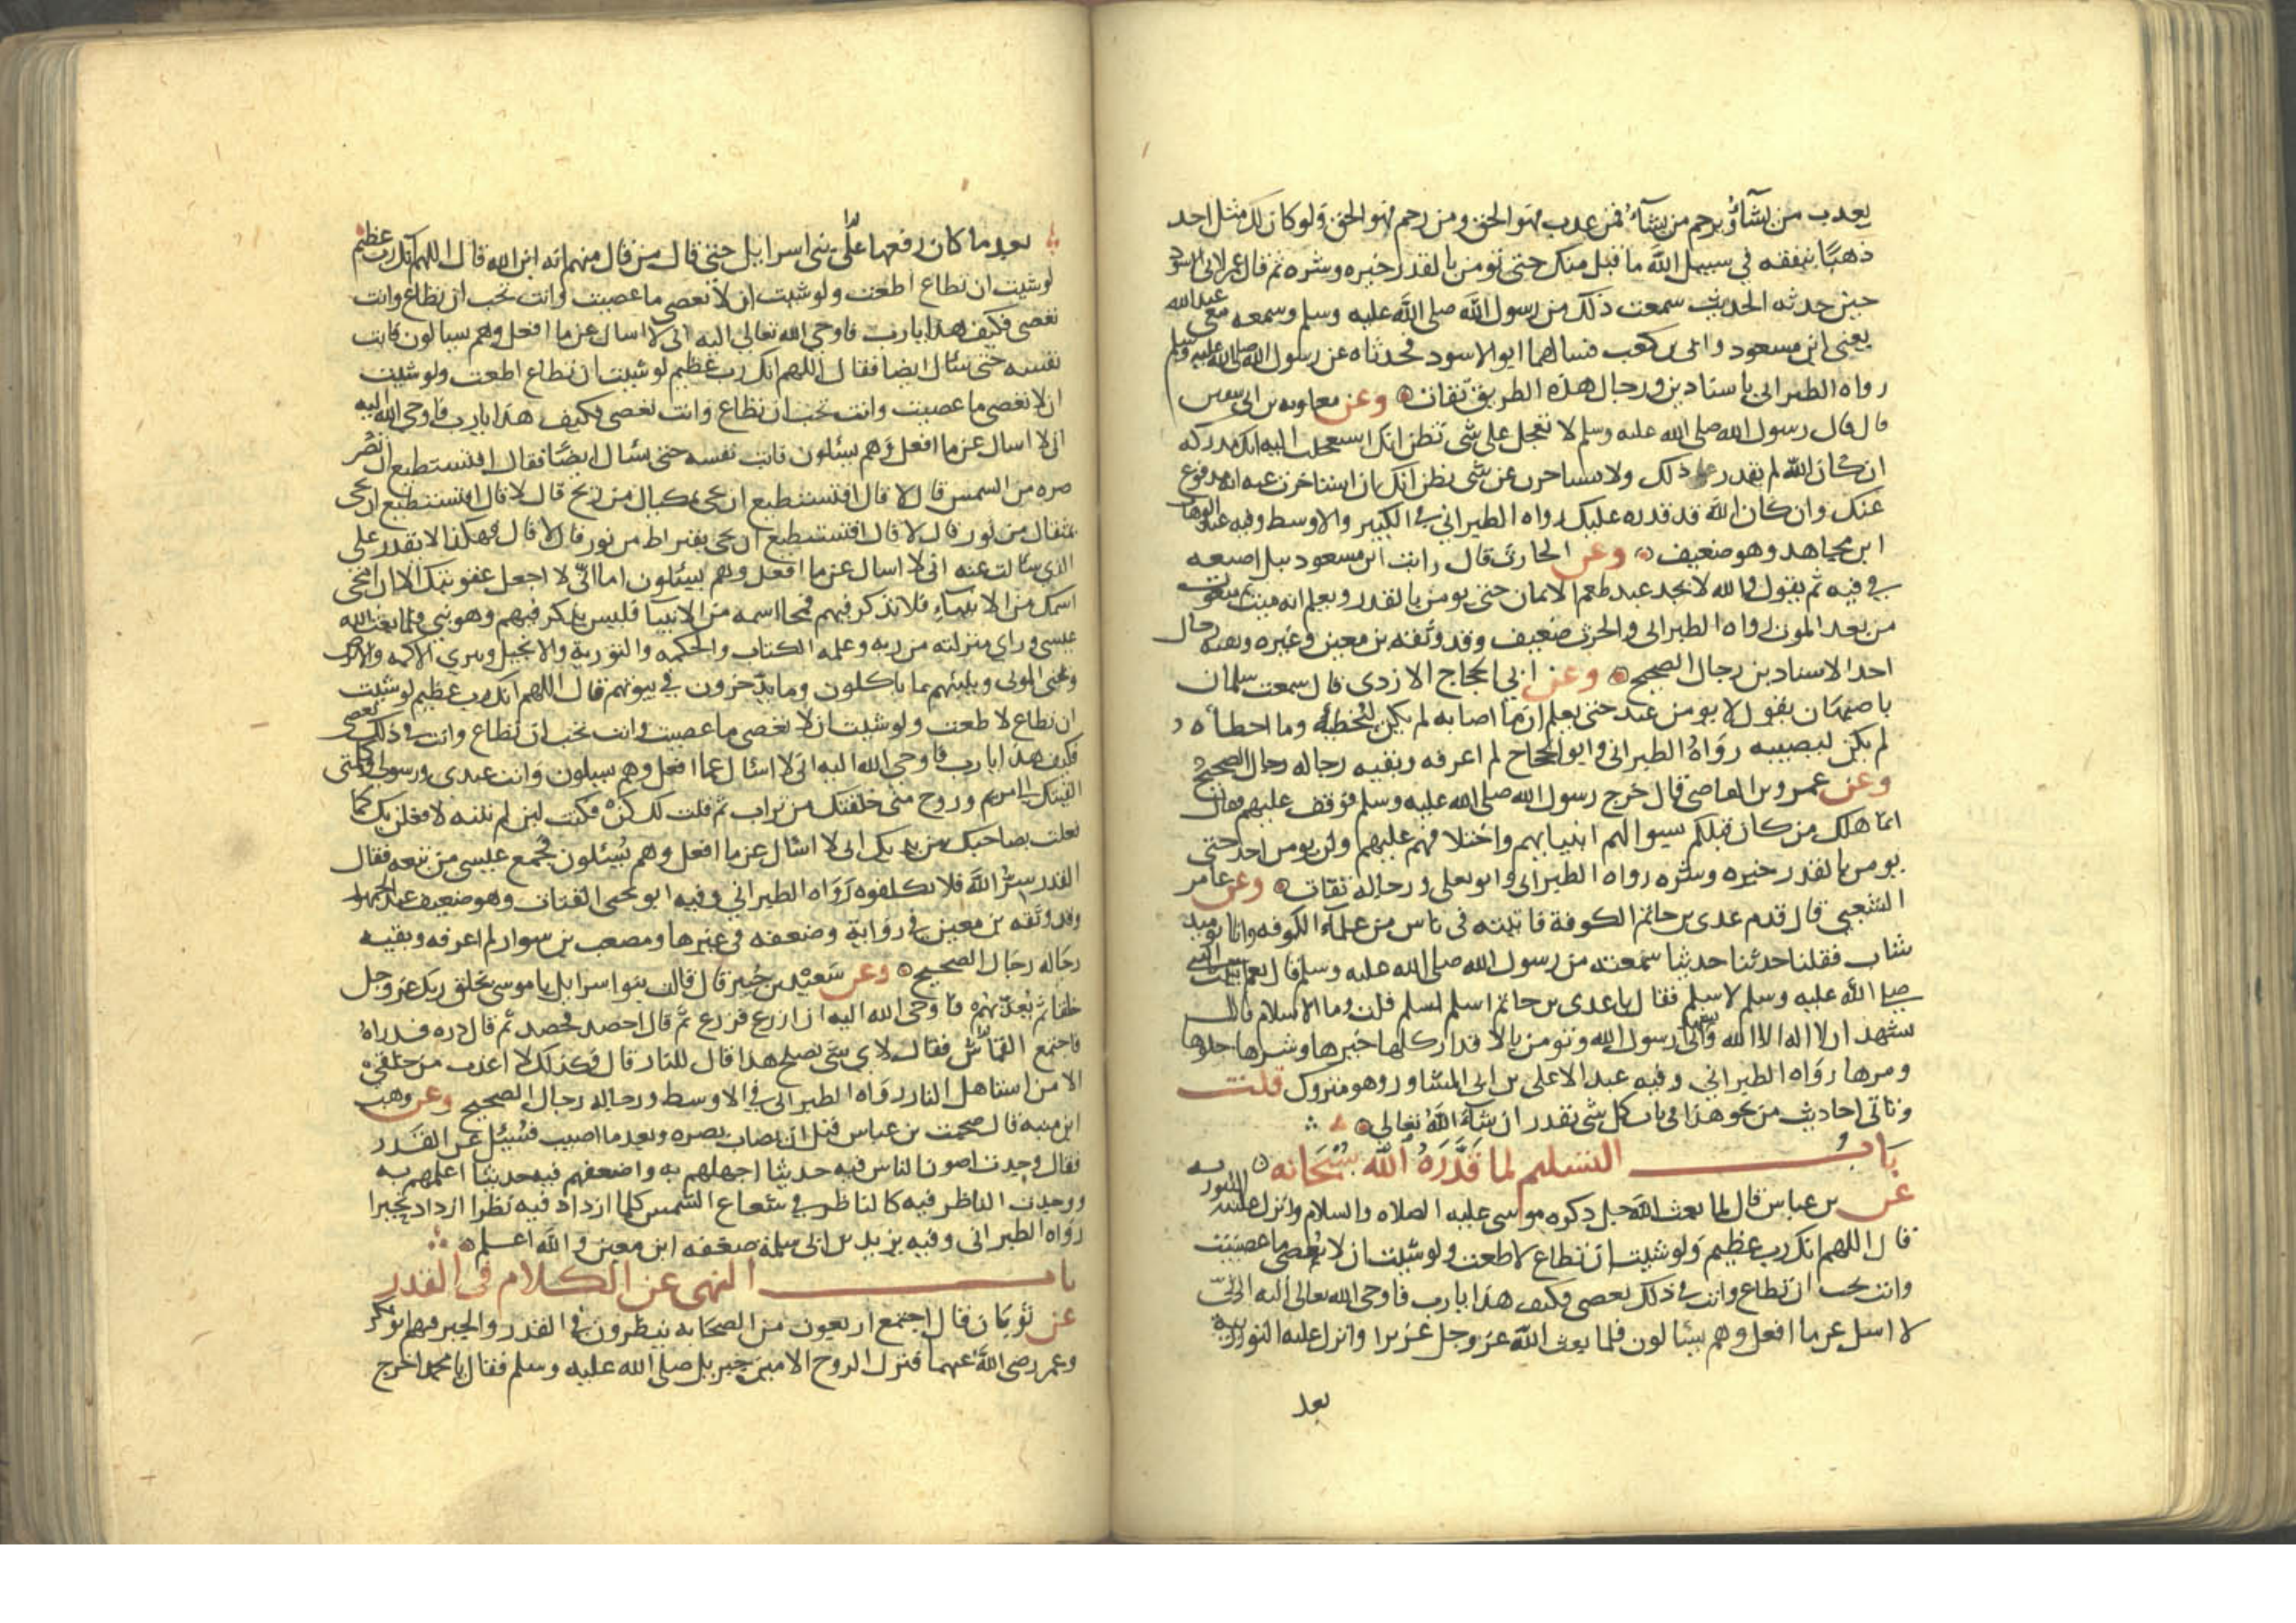 يعذب من يشاء ويرحم من يشاء فمن عذب فهو الحق ومن رحم فهو الحق ولو كان لك مثل احد
ذهبا ينفقه في سبيل الله ما قبل منك حتى تومن بالقدر خيره وشره ثم قال عمر لابي الاسود
حين حدثه الحديث سمعت ذلك من رسول الله صلى الله عليه وسلم وسمعه معي عبد الله
يعني ابن مسعود وابي بن كعب فسالهما ابو الاسود فحدثاه عن رسول الله صلى الله عليه وسلم
رواه الطبراني باسنادين ورجال هذه الطريق ثقات وعن معاويه بن ابي سفين
قال قال رسول الله صلى الله عليه وسلم لا تعجل على شي تظن انك ان استعجلت اليه انك مدركه
ان كان الله لم يقدر عليك ذلك ولا تستاخرن عن شي تظن انك ان استاخرت عنه انه مدفوع
عنك وان كان الله قد قدره عليك رواه الطبراني في الكبير والاوسط وفيه عبد الوهاب
ابن مجاهد وهو ضعيف وعن الحارث قال رايت ابن مسعود يبل اصبعه
في فيه ثم يقول والله لا يجد عبد طعم الايمان حتى يومن بالقدر ويعلم انه ميت ثم مبعوث
من بعد الموت رواه الطبراني والحرث ضعيف وقد وثقه بن معين وغيره وبقيه رجال
احد الاسنادين رجال الصحيح وعن ابي الحجاج الازدي قال سمعت سلمان
باصبهان يقول لا يومن عبد حتى يعلم ان ما اصابه لم يكن ليخطئه وما اخطاه
لم يكن ليصيبه رواه الطبراني وابو الحجاج لم اعرفه وبقيه رجاله رجال الصحيح
وعن عمرو بن العاصي قال خرج رسول الله صلى الله عليه وسلم فوقف عليهم فقال
انما هلك من كان قبلكم بسوالهم انبياهم واختلافهم عليهم ولن يومن احد حتى
يومن بالقدر خيره وشره رواه الطبراني وابو يعلى ورجاله ثقات وعن عامر
الشعبي قال قدم عدي بن حاتم الكوفة فاتيته في ناس من علماء الكوفه وانا يوميذ
شاب فقلنا حدثنا حديثا سمعته من رسول الله صلى الله عليه وسلم قال نعم اتيت النبي
صلى الله عليه وسلم لاسلم فقال يا عدي بن حاتم اسلم تسلم قلت وما الاسلام قال
تشهد ان لا اله الا الله واني رسول الله وتومن بالاقدار كلها خيرها وشرها حلوها
ومرها رواه الطبراني وفيه عبد الاعلى بن ابي المساور وهو متروك قلت
وتاتي احاديث من نحو هذا في باب كل شي بقدر ان شاء الله تعالى
باب التسليم لما قدره الله سبحانه
عن بن عباس قال لما بعث الله جل ذكره موسى عليه الصلاه والسلام وانزل عليه التوريه
قال اللهم انك رب عظيم ولو شيت ان تطاع لاطعت ولو شيت ان لا تعصى ما عصيت
وانت تحب ان تطاع وانت في ذلك تعصى فكيف هذا يا رب فاوحى الله تعالى اليه اني
لا اسل عن ما افعل وهم يسالون فلما بعث الله عز وجل عزيرا وانزل عليه التوريه
بعد
بعد ما كان رفعها عن بني اسرايل حتى قال من قال منهم انه ابن الله قال اللهم انك رب عظيم
لو شيت ان تطاع اطعت ولو شيت ان لا تعصى ما عصيت وانت تحب ان تطاع وانت
تعصى فكيف هذا يا رب فاوحى الله تعالى اليه اني لا اسال عن ما افعل وهم يسالون فابت
نفسه حتى سال ايضا فقال اللهم انك رب عظيم لو شيت ان تطاع اطعت ولو شيت
ان لا تعصى ما عصيت وانت تحب ان تطاع وانت تعصى فكيف هذا يا رب فاوحى الله اليه
اني لا اسال عن ما افعل وهم يسئلون فابت نفسه حتى سال ايضا فقال افتستطيع ان تصر
صره من الشمس قال لا قال افتستطيع ان تجى بمكيال من ريح قال لا قال افتستطيع ان تجى
بمثقال من نور قال لا قال افتستطيع ان تجى بقيراط من نور قال لا قال فهكذا لا تقدر على
الذي سالت عنه اني لا اسال عن ما افعل وهم يسئلون اما اني لا اجعل عقوبتك الا ان امحى
اسمك من الانبياء فلا تذكر فيهم فمحا اسمه من الانبيا فليس يذكر فيهم وهو نبي فلما بعث الله
عيسى وراى منزلته من ربه وعلمه الكتاب والحكمه والتوريه والانجيل ويبري الاكمه والابرص
ويحيى الموتى وينبئهم بما ياكلون وما يدخرون في بيوتهم قال اللهم انك رب عظيم لو شيت
ان تطاع لاطعت ولو شيت ان لا تعصى ما عصيت وانت تحب ان تطاع وانت في ذلك تعصى
فكيف هذا يا رب فاوحى الله اليه اني لا اسئال عما افعل وهم يسيلون وانت عبدي ورسولي وكلمتي
القيتك الى مريم وروح مني خلقتك من تراب ثم قلت لك كن فكنت لين لم تنته لافعلن بك كما
فعلت بصاحبك بين يديك اني لا اسئال عن ما افعل وهم يسيئلون فجمع عيسى من تبعه فقال
القدر سر الله فلا تكلفوه رواه الطبراني وفيه ابو يحيى القتات وهو ضعيف عند الجمهور
وقد وثقه بن معين في رواية وضعفه في غيرها ومصعب بن سوار لم اعرفه وبقيه
رجاله رجال الصحيح وعن سعيد بن جبير قال قالت بنوا اسرايل يا موسى يخلق ربك عز وجل
خلقا ثم يعذبهم فاوحى الله اليه ان ازرع فزرع ثم قال احصد فحصد ثم قال ذره فذراه
فاجتمع القماش فقال لاي شي يصلح هذا قال للنار قال فكذلك لا اعذب من خلقي
الا من استاهل النار رواه الطبراني في الاوسط ورجاله رجال الصحيح وعن وهب
ابن منبه قال صحبت بن عباس قبل ان يصاب بصره وبعد ما اصيب فسئيل عن القدر
فقال وجدت اصوب الناس فيه حديثا اجهلهم به واضعفهم فيه حديثا اعلمهم به
ووجدت الناظر فيه كالناظر في شعاع الشمس كلما ازداد فيه نظرا ازداد تحيرا
رواه الطبراني وفيه يزيد بن ابي سلمة ضعفه ابن معين والله اعلم
باب النهى عن الكلام في القدر
عن ثوبان قال اجتمع اربعون من الصحابه ينظرون في القدر والجبر فيهم ابو بكر
وعمر رضي الله عنهما فنزل الروح الامين جبريل صلى الله عليه وسلم فقال يا محمد اخرج